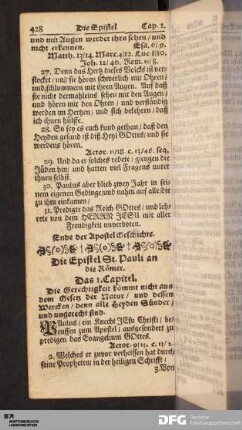 928 Die Epistel Cap. 1.
und mit Augen werdet ihrs sehen / und
nicht erkennen. Esa. 6/9.
Matth. 13/14. Marc. 4/12. Luc. 8/10.
Joh. 12/40. Rom. 11/8.
27. Denn das Hertz dieses Volcks ist ver-
stocket / und sie hören schwerlich mit Ohren /
und schlummern mit ihren Augen. Auf daß
sie nicht dermahleins sehen mit den Augen /
und hören mit den Ohren / und verständig
werden im Hertzen / und sich bekehren / daß
ich ihnen hülffe.
28. So sey es euch kund gethan / daß den
Heyden gesand ist diß Heyl GOttes / und sie
werdens hören.
29. Und da er solches redete / giengen die
Jüden hin / und hatten viel Fragens unter
ihnen selbst.
30. Paulus aber blieb zwey Jahr in sei-
nem eigenen Gedinge / und nahm auf alle die
zu ihm einkamen /
31. Predigte das Reich GOttes / und leh-
rete von dem HERRN JESU mit aller
Freudigkeit unverboten.
Ende der Apostel Geschichte.
Die Epistel St. Pauli an
die Römer.
Das 1. Capitel.
Die Gerechtigkeit kömmt nicht aus
dem Gesetz der Natur / und dessen
Wercken / denn alle Heyden Sünder /
und ungerecht sind.
Paulus / ein Knecht JEsu Christi / be-
ruffen zum Apostel / ausgesondert zu
predigen das Evangelium GOttes.
2. Welches er zuvor verheissen hat durch
seine Propheten in der heiligen Schrifft /
3. Von
DFG